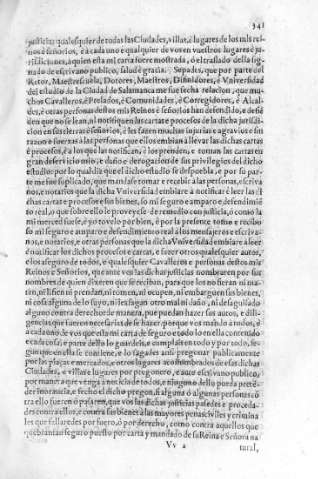 341
justicias qualesquier de todas las Ciudades, villas, è lugares de los mis rei
nos è señorios, è à cada uno è qualquier de vos en vuestros lugares è ju-
risdiciones, à quien esta mi carta fuere mostrada, ó el traslado della sig-
nado de escrivano publico, salud è gracia. Sepades, que por parte del
Retor, Maestrescuela, Dotores, Maestros, Difinidores, è Vniversidad
del estudio de la Ciudad de Salamanca me fue fecha relacion, que mu
chos Cavalleros, è Prelados, è Comunidades, è Corregidores, è Alcal
des, è otras personas destos mis Reinos è Señorios han defendido, e defiē
den que no se lean, ni notifiquen las cartas e procesos de la dicha jurisdi-
cion en sus tierras è señorios, è les fazen muchas injurias e agravios e sin
razon e fuerzas à las personas que ellos embian à llevar las dichas cartas
è procesos, è à los que las notifican, è los prenden, e toman las cartas en
gran deservicio mio, e daño e derogacion de sus privilegios del dicho
estudio: por lo qual diz que el dicho estudio se despuebla, e por su par-
te me fue suplicado, que mandase tomar e recibir à las personas, e escriva
nos, e notarios que la dicha Vniversidad embiare à notificar è leer las di
chas cartas e procesos e sus bienes, so mi seguro e amparo e defendimiē
to real, o que sobre ello le proveyese de remedio con justicia, ó como la
mi merced fuese, è yo tovelo por bien, è por la presente tomo e recibo
so mi seguro e amparo e defendimiento real à los mensajeros e escriva-
nos, e notarios, e otras personas que la dicha Vniversidad embiare à leer
ó notificar los dichos procesos e cartas, e fazer otros qualesquier autos,
e los aseguro de todos, è qualesquier Cavalleros e personas destos mis
Reinos e Señorios, que ante vos las dichas justicias nombraren por sus
nombres de quien dixeren que se recelan, para que los no fieran ni ma-
ten, ni lisien ni prendan, ni tomen, ni ocupen, ni embarguen sus bienes,
ni cosa alguna de lo suyo, ni les fagan otro mal ni daño, ni desaguisado
alguno contra derecho de manera, que puedan hazer sus autos, e dili-
gencias que fueren necesarias de se hazer: porque vos mando à todos, è
à cada uno de vos que esta mi carta, de seguro e todo lo en ella contenido
e cada cosa, e parte dello lo guardeis, e cumplais en todo y por todo, se-
gun que en ella se contiene, è lo fagades ansi pregonar publicamente
por las plaças e mercados, e otros lugares acostumbrados de esas dichas
Ciudades, e villas e lugares por pregonero, e ante escrivano publico,
por manera que venga à noticia de todos, e ninguno dello pueda pretē-
der inorancia, e fecho el dicho pregon, si alguna ó algunas personas cō
tra ello fueren ó pasaren, que vos las dichas justicias pasedes e proceda-
des contra ellos, e contra sus bienes à las mayores penas civiles y crimina
les que fallaredes por fuero, ó por derecho, como contra aquellos que
quebrantan seguro puesto por carta y mandado de su Reina e Señora na
Vv 2
tural,